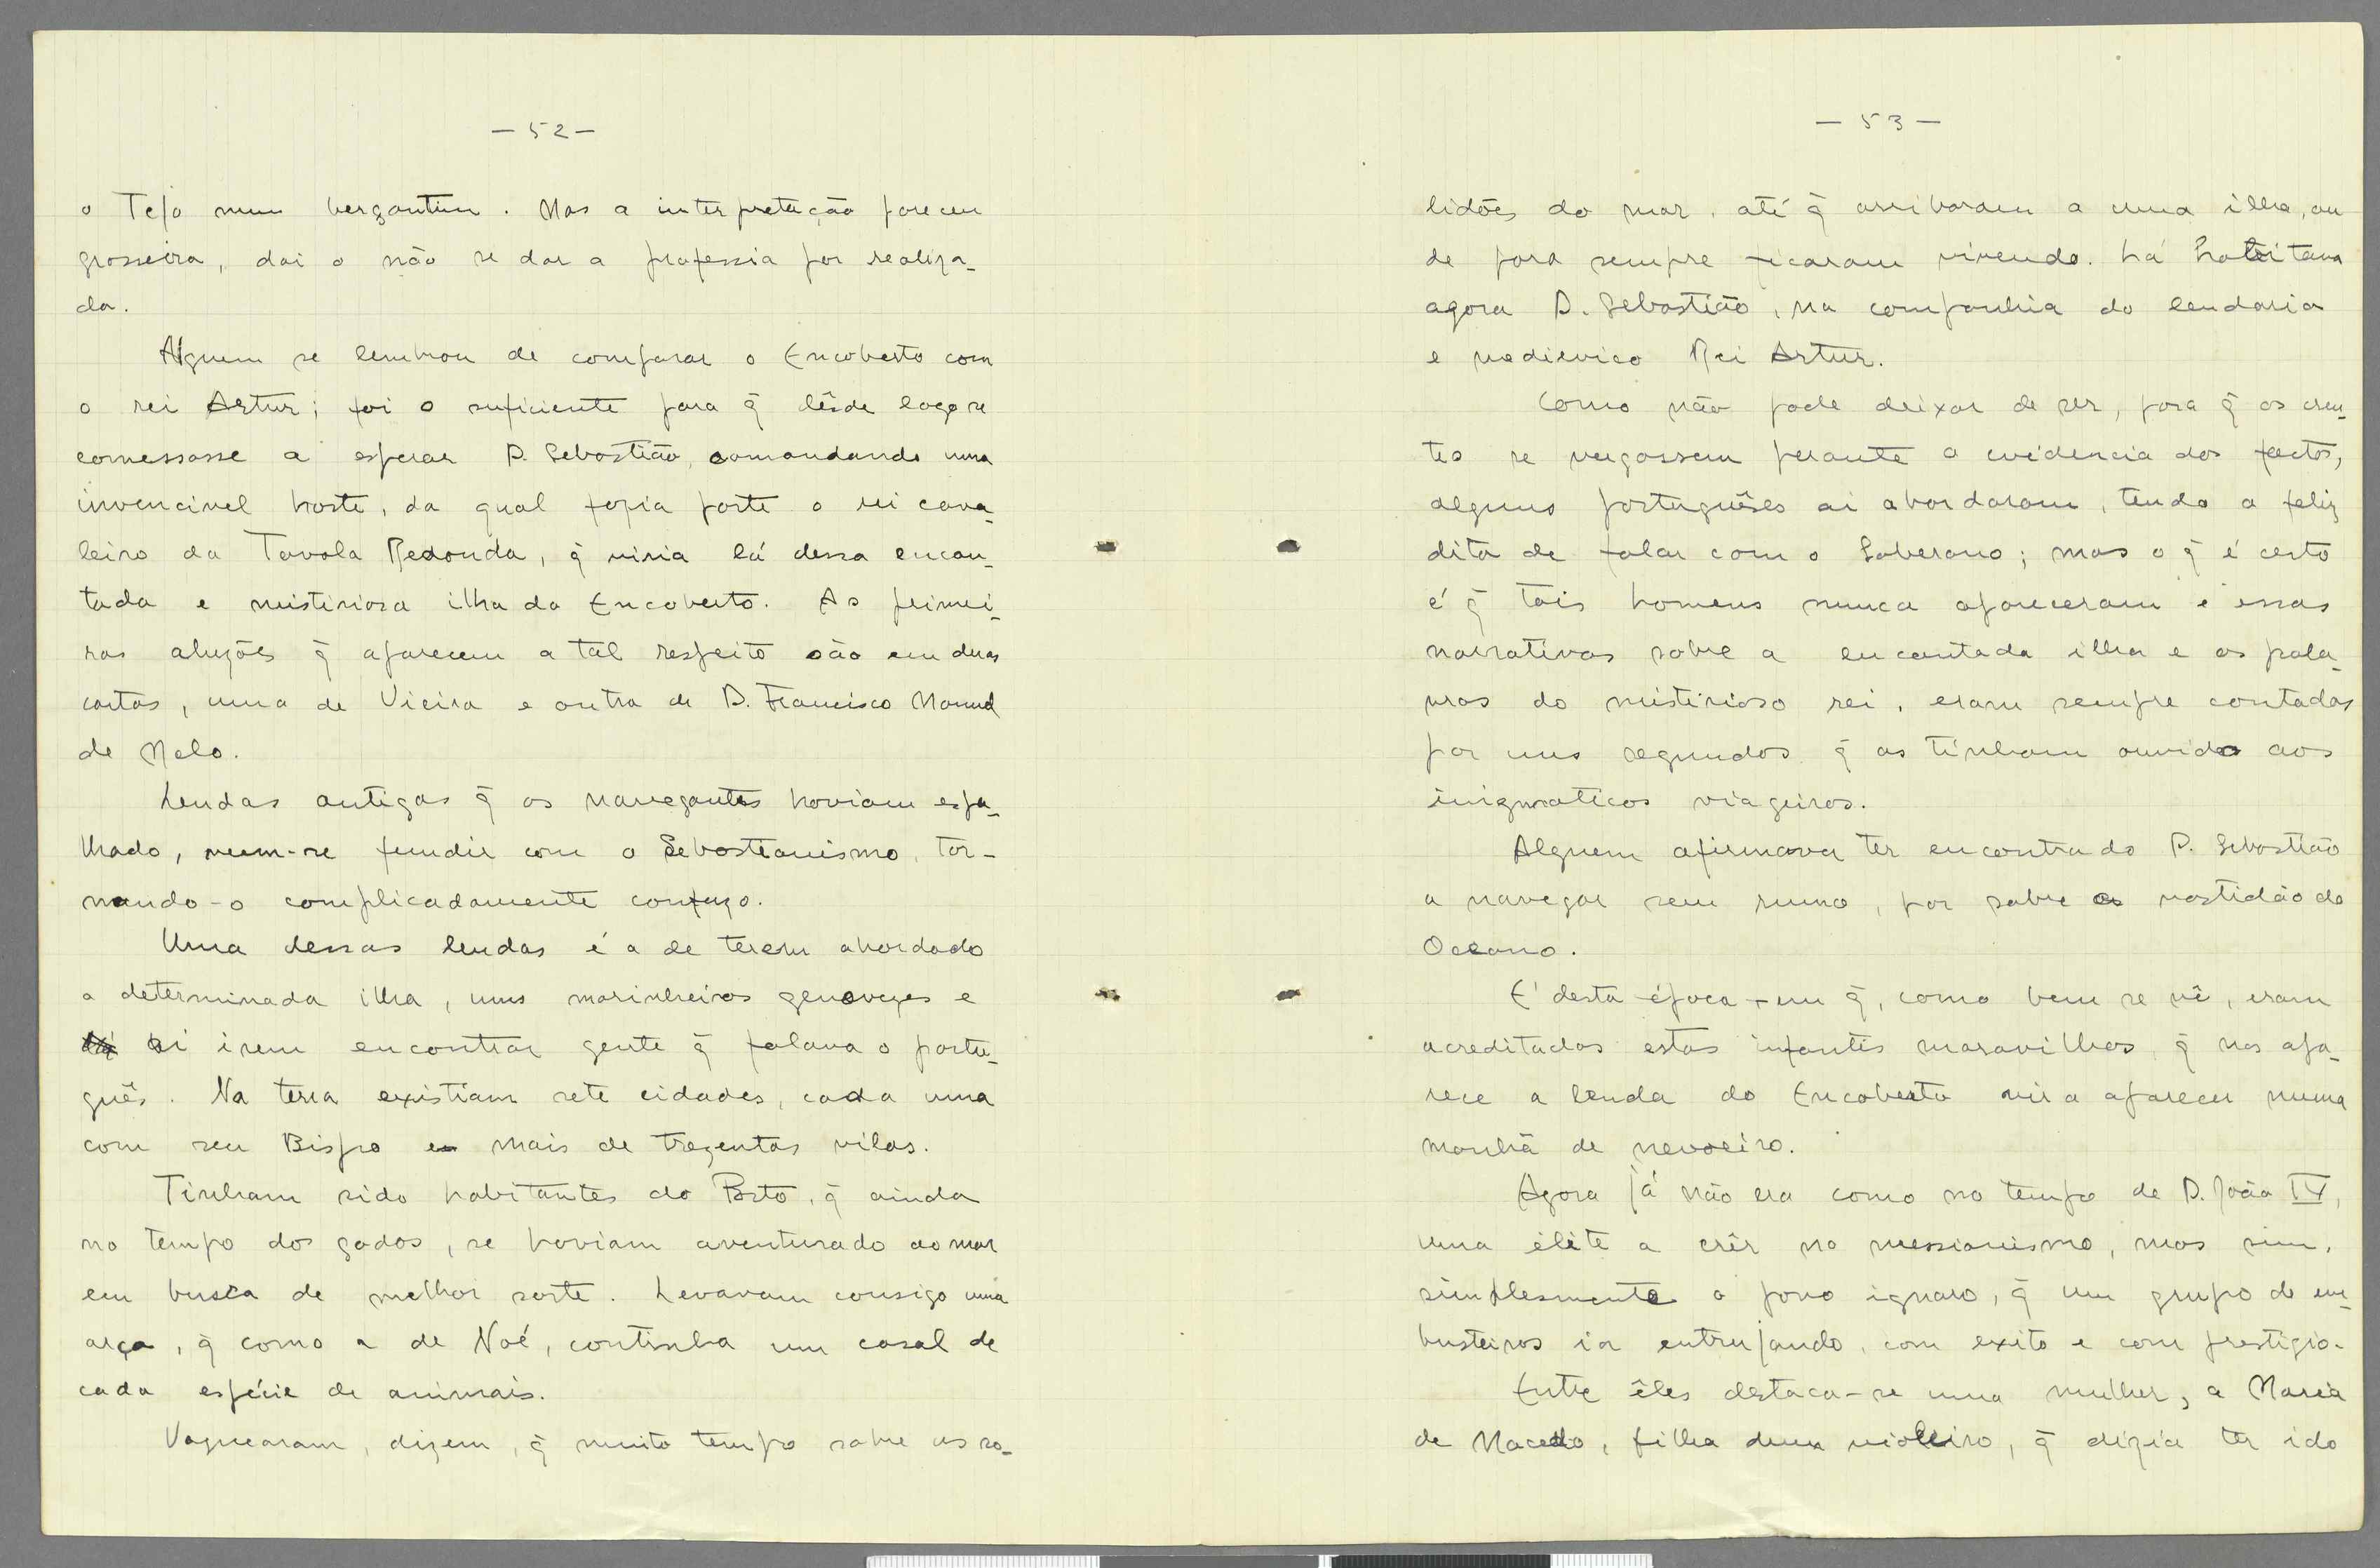 — 52 —
o Tejo num bergantim. Mas a interpretação pareceu
grosseira, dai o não se dar a professia por realiza-
da.
Alguem se lembrou de comparar o Encoberto com
o rei Artur; foi o suficiente para q̃ dêsde logo se
comessasse a esperar D. Sebastião, comandando uma
invencivel hoste, da qual fazia parte o rei cava-
leiro da Tavola Redonda, q̃ viria lá dessa encan-
tada e misteriosa ilha do Encoberto. As primei-
ras aluzões q̃ aparecem a tal respeito são em duas
cartas, uma de Vieira e outra de D. Francisco Manuel
de Melo.
Lendas antigas q̃ os navegantes haviam espa-
lhado, veem-se fundir com o Sebastianismo, tor-
nando-o complicadamente confuzo.
Uma dessas lendas é a de terem abordado
a determinada ilha, uns marinheiros genovezes e
ai irem encontrar gente q̃ falava o portu-
guês. Na terra existiam sete cidades, cada uma
com seu Bispo e mais de trezentas vilas.
Tinham sido habitantes do Porto, q̃ ainda
no tempo dos godos, se haviam aventurado ao mar
em busca de melhor sorte. Levavam consigo uma
arca, q̃ como a de Noé, continha um casal de
cada espécie de animais.
Vaguearam, dizem, q̃ muito tempo sobre as so-
— 53 —
lidões do mar, até q̃ arribaram a uma ilha, on
de para sempre ficaram vivendo. Lá habitava
agora D. Sebastião, na companhia do lendario
e medievico Rei Artur.
Como não pode deixar de ser, para q̃ os cren-
tes se vergassem perante a evidencia dos factos,
alguns portuguêses ai abordaram, tendo a feliz
dita de falar com o Soberano; mas o q̃ é certo
é q̃ tais homens nunca apareceram e essas
narrativas sobre a encantada ilha e as pala-
vras do misterioso rei, eram sempre contadas
por uns segundos q̃ as tinham ouvido aos
inigmaticos viageiros.
Alguem afirmava ter encontrado D. Sebastião
a navegar sem rumo, por sobre a vastidão do
Oceano.
E' desta época - em q̃, como bem se vê, eram
acreditadas estas infantis maravilhas, q̃ nos apa-
rece a lenda do Encoberto vir a aparecer numa
manhã de nevoeiro.
Agora já não era como no tempo de D. João IV,
uma élite a crêr no messianismo, mas sim,
simplesmente o povo ignaro, q̃ um grupo de em-
busteiros ia entrujando, com exito e com prestigio.
Entre êles destaca-se uma mulher, a Maria
de Macedo, filha dum violeiro, q̃ dizia ter ido